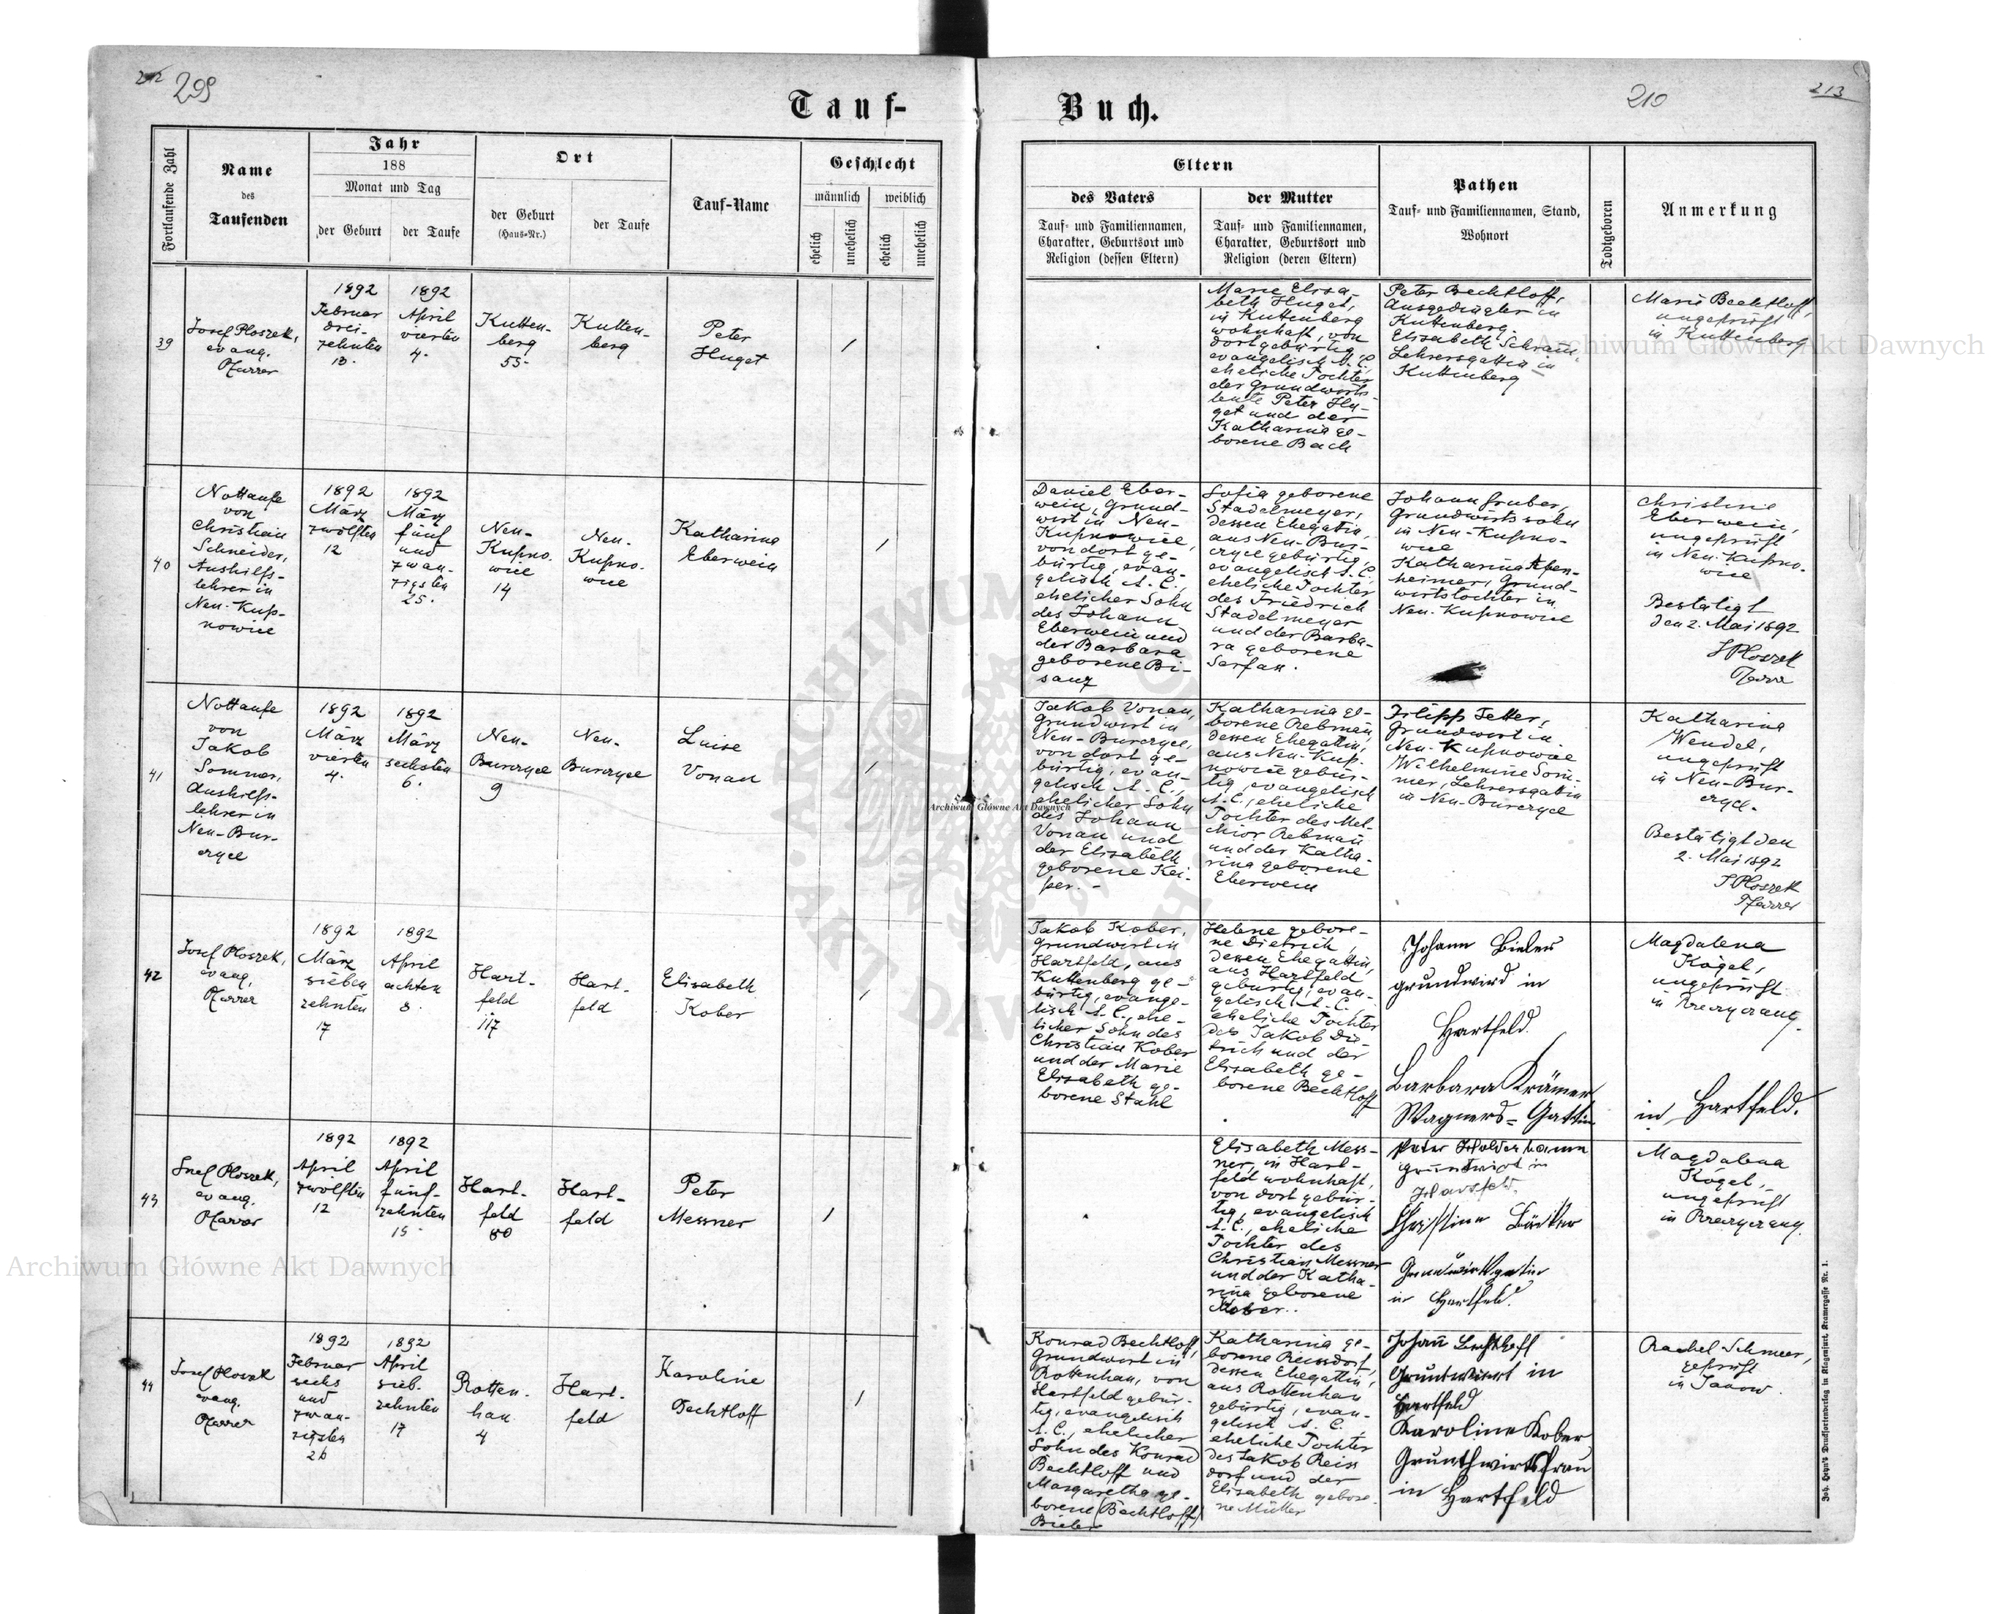 212 209
Tauf-
Buch.
210
213
Fortlaufende Zahl
Name
des
Taufenden
Jahr
188
Monat und Tag
der Geburt
der Taufe
Ort
der Geburt
(Haus-Nr.)
der Taufe
Tauf-Name
Geschlecht
männlich
weiblich
ehelich
unehelich
ehelich
unehelich
Eltern
des Vaters
Tauf- und Familiennamen,
Charakter, Geburtsort und
Religion (dessen Eltern)
der Mutter
Tauf- und Familiennamen,
Charakter, Geburtsort und
Religion (deren Eltern)
Pathen
Tauf- und Familiennamen, Stand,
Wohnort
Todtgeboren
Anmerkung
39
Josef Ploszek,
evang.
Pfarrer
1892
Februar
drei-
zehnten
13.
1892
April
vierten
4.
Kutten-
berg
55.
Kutten-
berg
Peter
Huget
/
Marie Elisa-
beth Huget,
in Kuttenberg
wohnhaft, von
dort gebürtig
evangelisch A. C.,
eheliche Tochter
der Grundwirts-
leute Peter Hu-
get und der
Katharina ge-
borene Bach
Peter Bechtloff,
Ausgedingler in
Kuttenberg.
Elisabeth Schram,
Lehrersgattin in
Kuttenberg
Marie Bechtloff,
ungeprüft
in Kuttenberg
40
Nottaufe
von
Christian
Schneider,
Aushilfs-
lehrer in
Neu-Kup-
nowice
1892
März
zwölften
12
1892
März
fünf
und
zwan-
zigsten
25.
Neu-
Kupno-
wice
14
Neu-
Kupno-
wice
Katharina
Eberwein
/
Daniel Eber-
wein, Grund-
wirt in Neu-
Kupnowice,
von dort ge-
bürtig, evan-
gelisch A. C.,
ehelicher Sohn
des Johann
Eberwein und
der Barbara
geborene Bi-
sanz
Sofia geborene
Stadelmeyer,
dessen Ehegattin,
aus Neu-Bur-
czyce gebürtig,
evangelisch A. C.,
eheliche Tochter
des Friedrich
Stadelmeyer
und der Barba-
ra geborene
Serfas.
Johann Gruber,
Grundwirtssohn
in Neu-Kupno-
wice
Katharina Aben-
heimer, Grund-
wirtstochter in
Neu-Kupnowice
Christine
Eberwein,
ungeprüft
in Neu-Kupno-
wice
Bestätigt
den 2. Mai 1892
J Ploszek
Pfarrer
41
Nottaufe
von
Jakob
Sommer,
Aushilfs-
lehrer in
Neu-Bur-
czyce
1892
März
vierten
4.
1892
März
sechsten
6.
Neu-
Burczyce
9
Neu-
Burczyce
Luise
Vonau
/
Jakob Vonau,
Grundwirt in
Neu-Burczyce,
von dort ge-
bürtig, evan-
gelisch A. C.,
ehelicher Sohn
des Johann
Vonau und
der Elisabeth
geborene Kei-
per. -
Katharina ge-
borene Rebman̄
dessen Ehegattin,
aus Neu-Kup-
nowice gebür-
tig, evangelisch
A. C., eheliche
Tochter des Mel-
chior Rebman̄
und der Katha-
rina geborene
Eberwein
Filipp Tetter,
Grundwirt in
Neu-Kupnowice
Wilhelmine Som-
mer, Lehrersgattin
in Neu-Burczyce
Katharina
Wendel,
ungeprüft
in Neu-Bur-
czyce.
Bestätigt den
2. Mai 1892
J Ploszek
Pfarrer
42
Josef Ploszek,
evang.
Pfarrer
1892
März
sieben
zehnten
17
1892
April
achten
8.
Hart-
feld
117
Hart-
feld
Elisabeth
Kober
/
Jakob Kober,
Grundwirt in
Hartfeld, aus
Kuttenberg ge-
bürtig, evange-
lisch A. C., ehe-
licher Sohn des
Christian Kober
und der Marie
Elisabeth ge-
borene Stahl
Helene gebore-
ne Dietrich,
dessen Ehegattin,
aus Hartfeld
gebürtig, evan-
gelisch A. C.
eheliche Tochter
des Jakob Die-
trich und der
Elisabeth ge-
borene Bechtloff
Johann Bieler
grundwird in
Hartfeld.
Barbara Krämer
Wagners-Gattin
in Hartfeld.
Magdalena
Kögel,
ungeprüft
43
Josef Ploszek,
evang.
Pfarrer
1892
April
zwölften
12
1892
April
fünf-
zehnten
15
Hart-
feld
80
Hart-
feld
Peter
Messner
/
Elisabeth Mess-
ner, in Hart-
feld wohnhaft,
von dort gebür-
tig, evangelisch
A. C., eheliche
Tochter des
Christian Messner
und der Katha-
rina geborene
Kober.
Peter
Hartfeld.
Christine Bäcker
in Hartfeld.
Magdalena
Kögel,
ungeprüft
44
Josef Ploszek
evang.
Pfarrer
1892
Februar
sechs
und
zwan-
zigsten
26
1892
April
sieb-
zehnten
17
Rotten-
han
4
Hart-
feld
Karoline
Bechtloff
/
Konrad Bechtloff,
Grundwirt in
Rottenhan, von
Hartfeld gebür-
tig, evangelisch
A. C., ehelicher
Sohn des Konrad
Bechtloff und
Margaretha ge-
borene (Bechtloff)
Bieler
Katharina ge-
borene Reissdorf,
dessen Ehegattin,
aus Rottenhan
gebürtig, evan-
gelisch A. C.,
eheliche Tochter
des Jakob Reiss
dorf und der
Elisabeth gebore-
ne Müller
Johan̄ Bechtloff
Gruntwiert in
Hartfeld
Karoline Kober
Grunthwirtsfrau
in Hartfeld
Rachel Schmeer,
geprüft
in Janow.
Joh. Heyn's Drucksortenverlag in Klagenfurt, Kramergasse Nr. 1.
Archiwum Główne Akt Dawnych
Archiwum Główne Akt Dawnych
Archiwum Główne Akt Dawnych